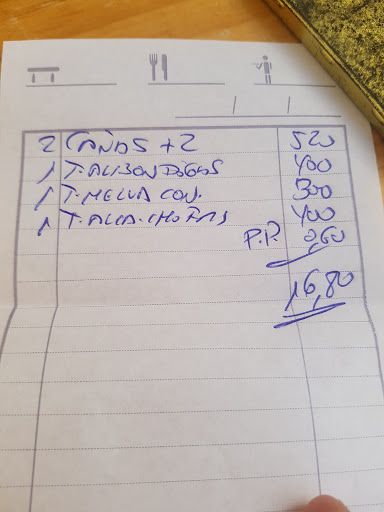 2 CAÑAS + 2 520
1 T. ALBONDIGAS 400
1 T. MELVA CON. 300
1 T. ALCACHOFAS 400
P.P. 0,60
16,80